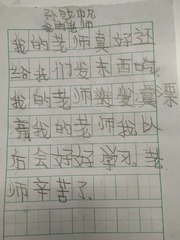 我的老师真好还
给我们发东西吃
我的老师
亮我的老师我以
后会好好学习。老
师辛苦了